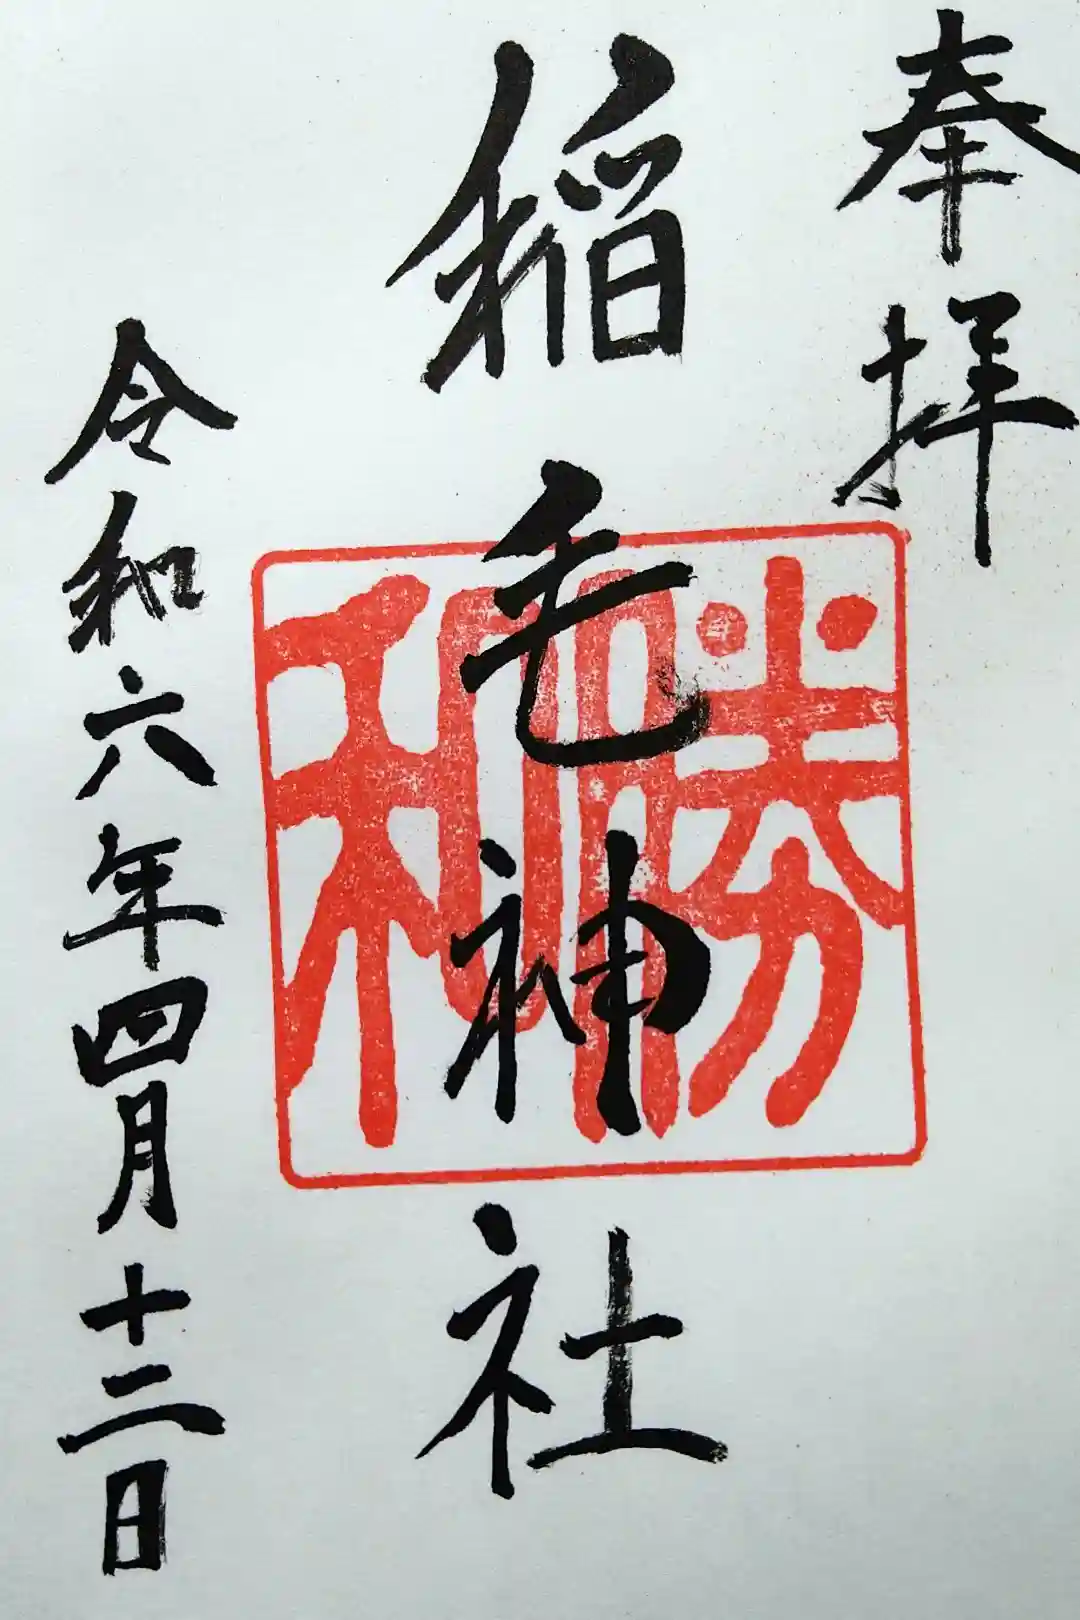 奉拝
稲毛神社
勝和
令和六年四月十二日